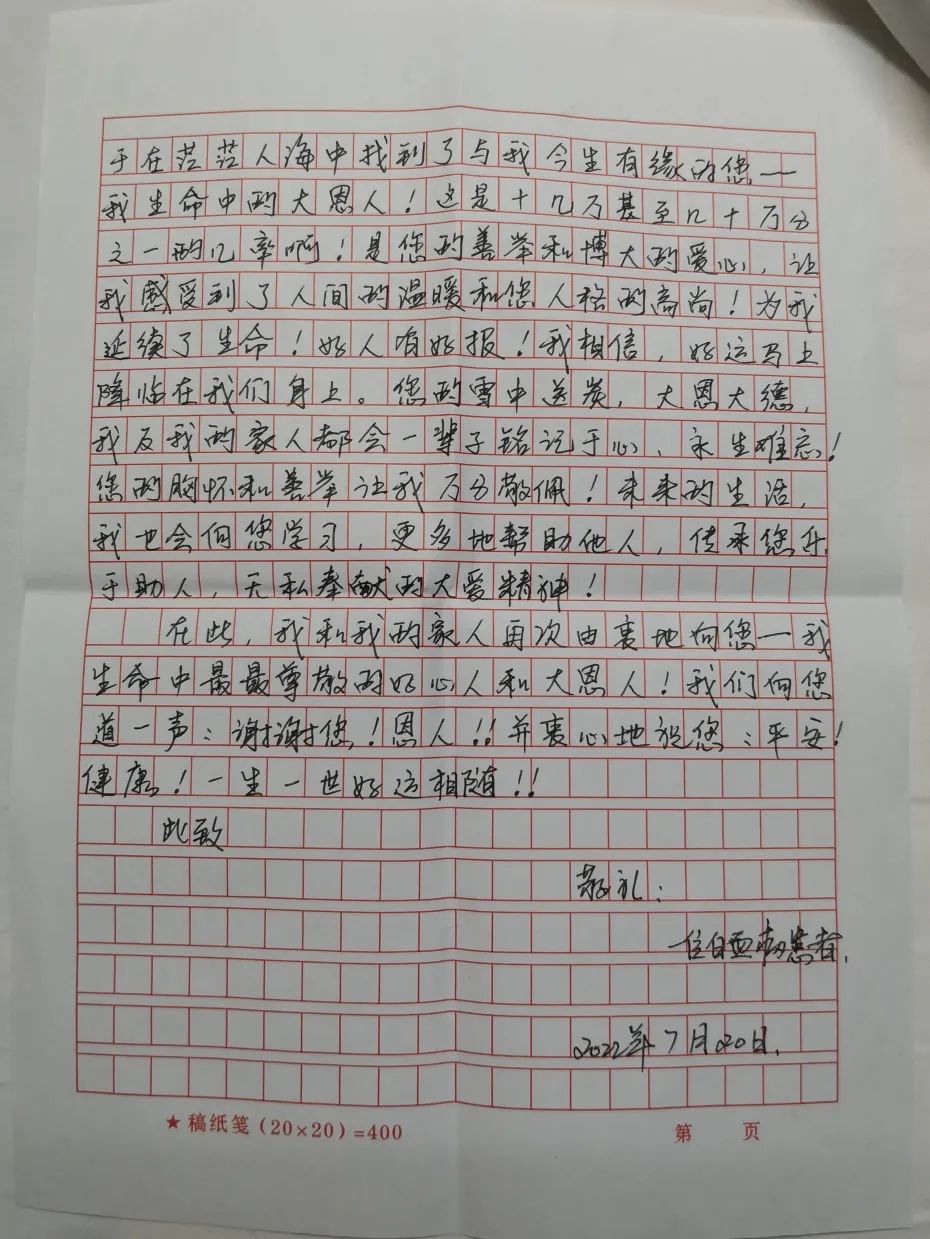 于在茫茫人海中找到了与我今生有缘的您—
我生命中的大恩人！这是十几万甚至几十万分
之一的几率啊！是您的善举和博大的爱心，让
我感受到了人间的温暖和您人格的高尚！为我
延续了生命！好人有好报！我相信，好运马上
降临在我们身上。您的雪中送炭，大恩大德，
我及我的家人都会一辈子铭记于心、永生难忘！
您的胸怀和善举让我万分敬佩！未来的生活，
我也会向您学习，更多地帮助他人，传承您乐
于助人，无私奉献的大爱精神！
在此，我和我的家人再次由衷地向您—我
生命中最最尊敬的好心人和大恩人！我们向您
道一声：谢谢您！恩人！！并衷心地祝您：平安！
健康！一生一世好运相随！！
此致
敬礼：
一位白血病患者.
2022年7月20日.
★稿纸笺(20×20)=400
第 页